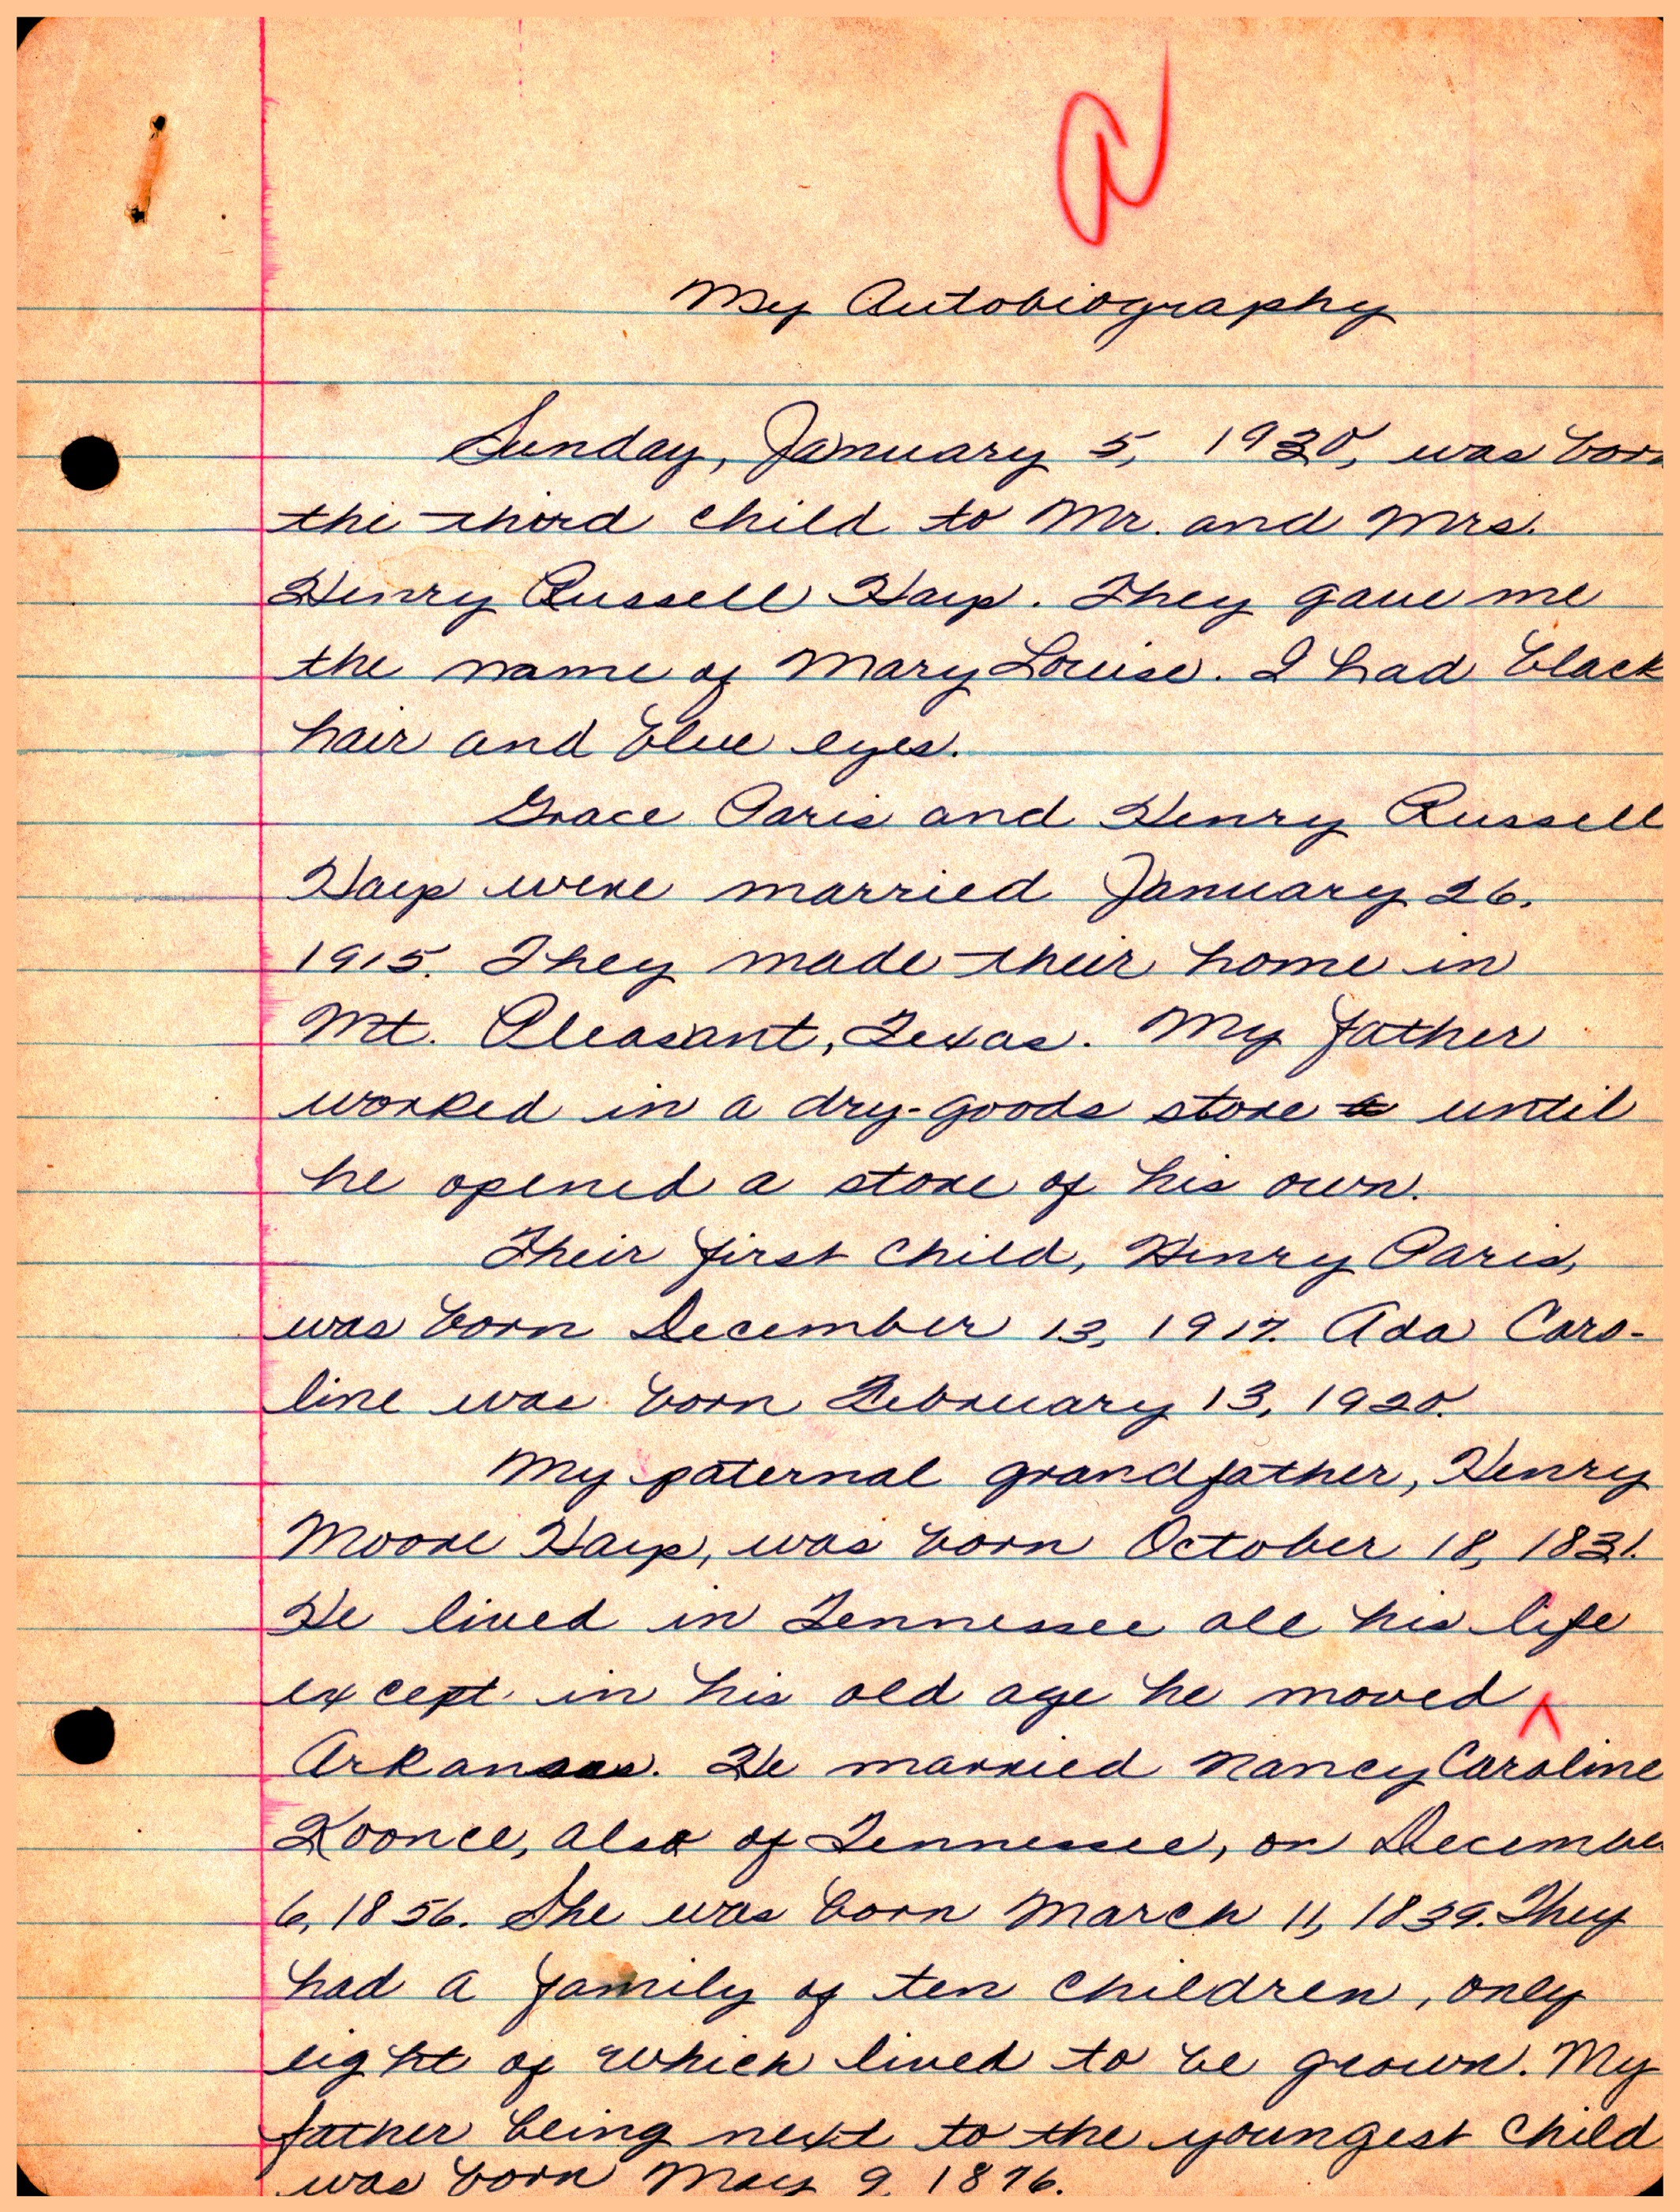 a
My Autobiography
Sunday, January 5, 1930, was born
the third child to Mr. and Mrs.
Henry Russell Harp. They gave me
the name of Mary Louise. I had black
hair and blue eyes.
Grace Paris and Henry Russell
Harp were married January 26,
1915. They made their home in
Mt. Pleasant, Texas. My father
worked in a dry-goods store a until
he opened a store of his own.
Their first child, Henry Paris,
was born December 13, 1917. Ada Caro-
line was born February 13, 1920.
My paternal grandfather, Henry
Moore Harp, was born October 18, 1831.
He lived in Tennessee all his life
except in his old age he moved ^
Arkansas. He married Nancy Caroline
Koonce, also of Tennessee, on December
6, 1856. She was born March 11, 1839. They
had a family of ten children, only
eight of which lived to be grown. My
father being next to the youngest child
was born May 9, 1876.